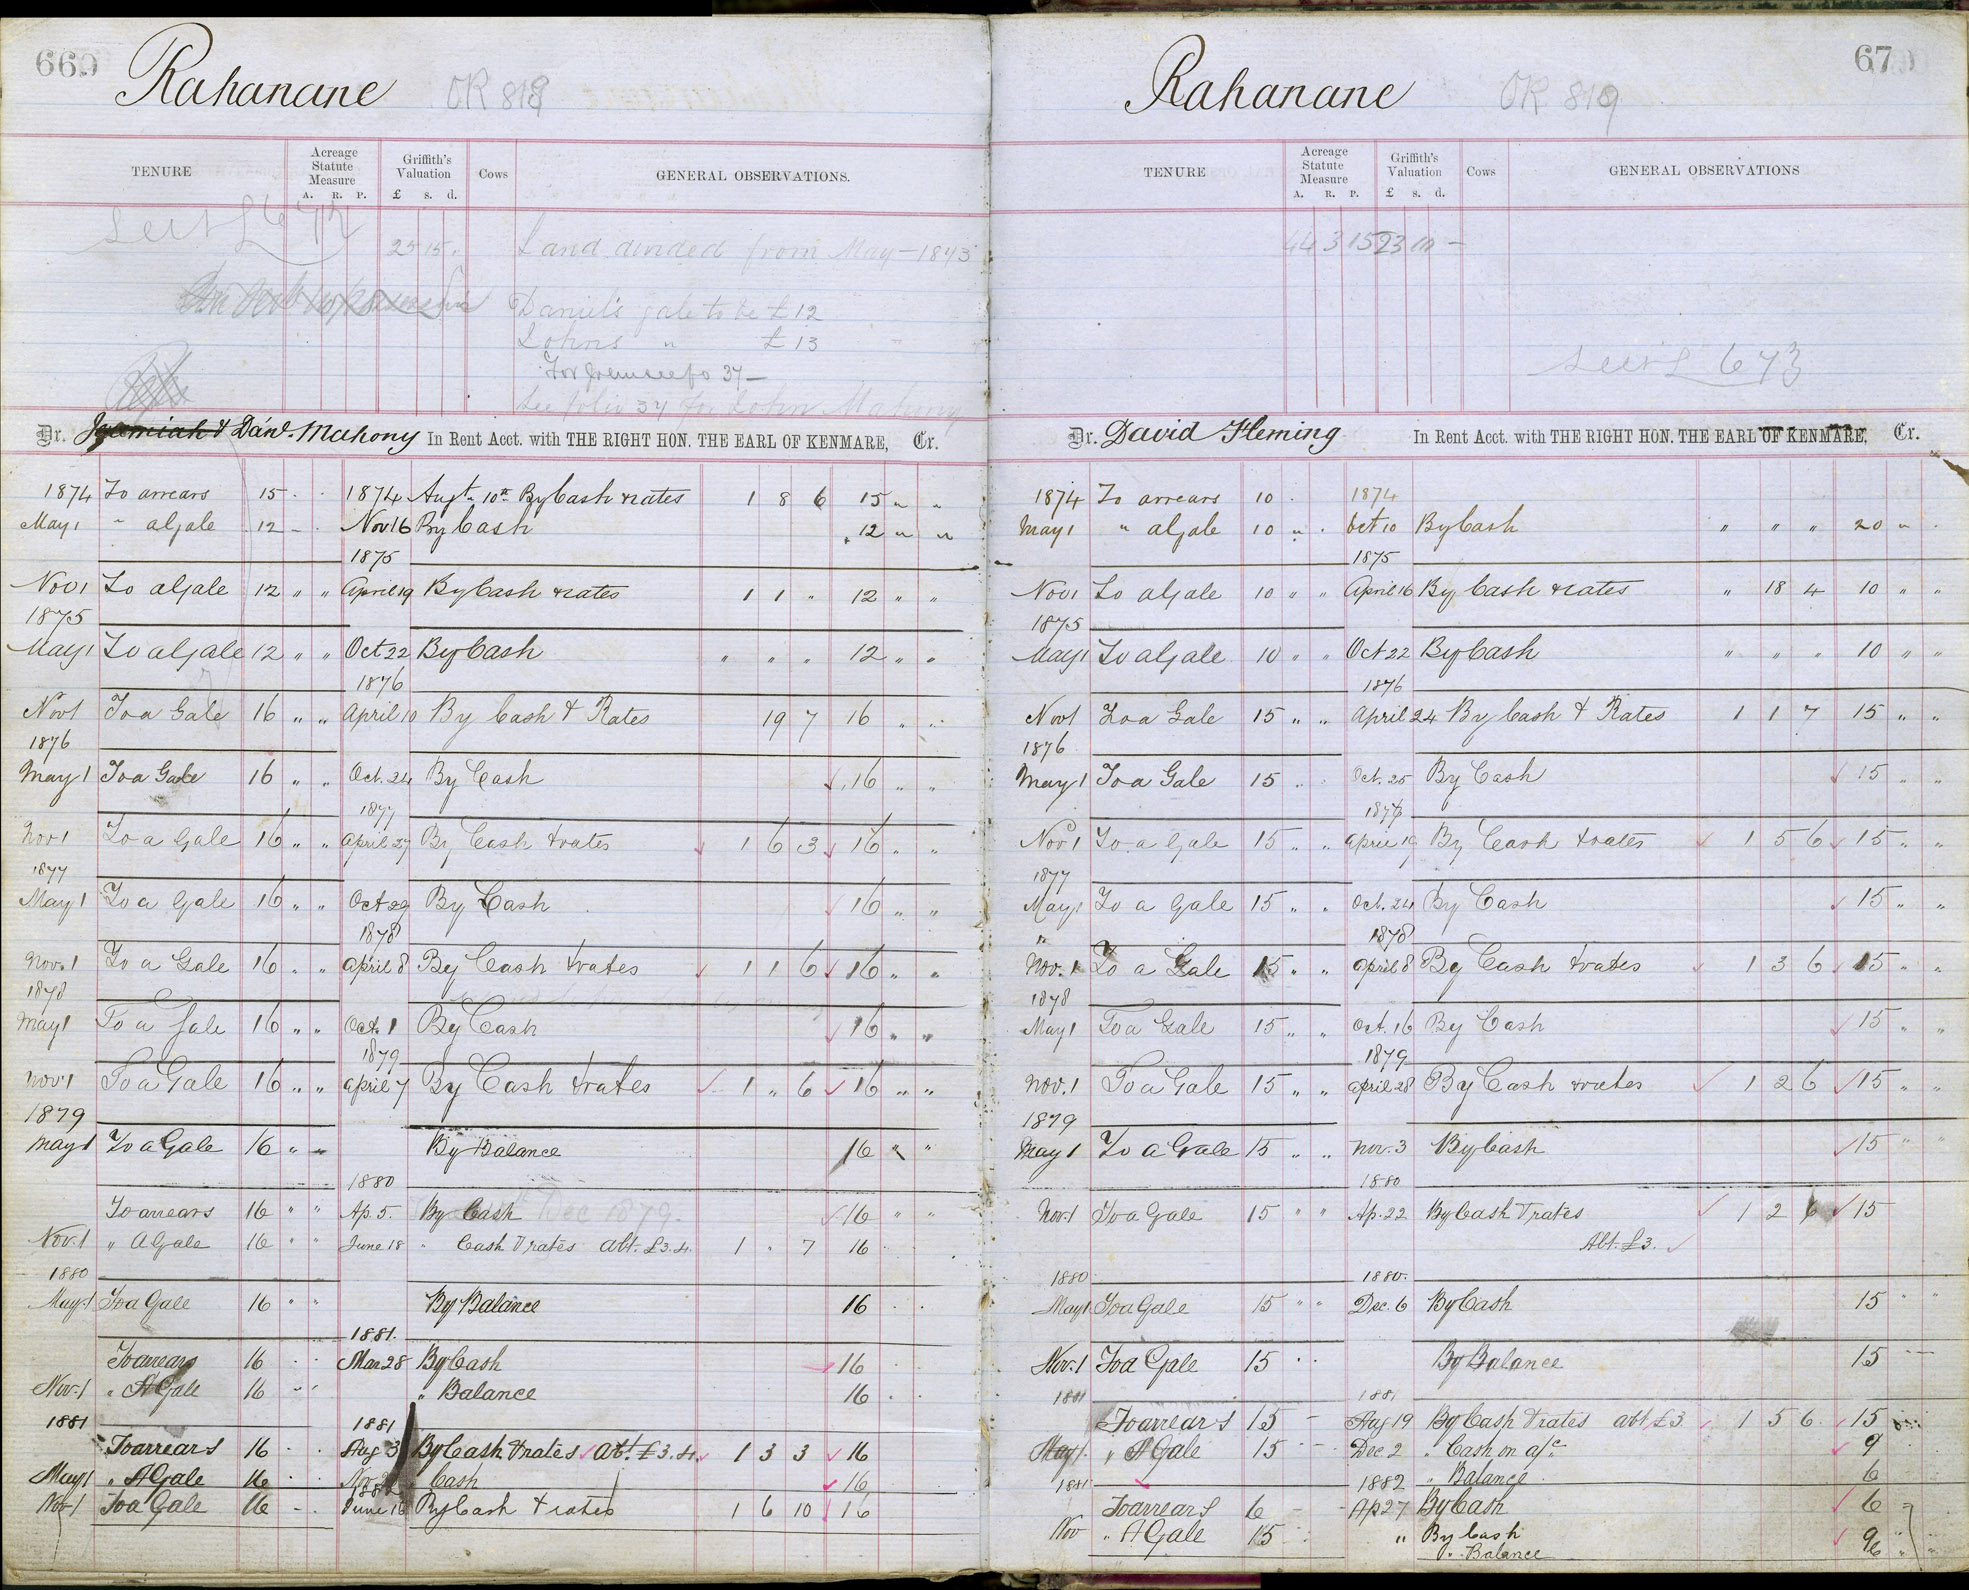 669
Rahanane OR 818
TENURE Acreage Statute Measure A. R. P. Griffith's Valuation £ s. d. Cows GENERAL OBSERVATIONS.
672
25 15 " Land divided from May 1873
Daniel's gale to be £12
Johns " £13
37
See folio 37 for John Mahony
Dr. Jeremiah & Danl. Mahony In Rent Acct. with THE RIGHT HON. THE EARL OF KENMARE, Cr.
1874 To arrears 15 . . 1874 Augt. 10th By Cash & rates 1 8 6 15 " "
May 1 " a Gale 12 - . Nov 16 By Cash 12 " "
1875
Nov 1 To a Gale 12 " " April 19 By Cash & rates 1 1 " 12 " "
1875
May 1 To a Gale 12 " " Oct 22 By Cash " " " 12 " "
1876
Nov 1 To a Gale 16 " " April 10 By Cash & Rates 19 7 16 " "
1876
May 1 To a Gale 16 " " Oct. 24 By Cash 16 " "
1877
Nov 1 To a Gale 16 " " April 27 By Cash & rates 1 6 3 16 " "
1877
May 1 To a Gale 16 " " Oct 29 By Cash 16 " "
1878
Nov. 1 To a Gale 16 " " April 8 By Cash & rates 1 1 6 16 " "
1878
May 1 To a Gale 16 " " Oct. 1 By Cash 16 " "
1879
Nov. 1 To a Gale 16 " " April 7 By Cash & rates 1 " 6 16 " "
1879
May 1 To a Gale 16 " " By Balance 16 " "
1880
To arrears 16 " " Ap. 5. By Cash Dec 1879 16 " "
Nov. 1 " A Gale 16 " " June 18 " Cash & rates abt. £3.4. 1 . 7 16
1880
May. 1 To a Gale 16 " " By Balance 16 . .
1881.
To arrears 16 . . Mar 28 By Cash 16 . .
Nov. 1 " A Gale 16 " " " Balance 16 . .
1881 1881
To arrears 16 . . Aug 3 By Cash & rates abt. £3.4. 1 3 3 16
May 1 " A Gale 16 . . Nov. " Cash 16
1882
Nov 1 To a Gale 16 - June 16 By Cash & rates 1 6 10 16
670
Rahanane OR 819
TENURE Acreage Statute Measure A. R. P. Griffith's Valuation £ s. d. Cows GENERAL OBSERVATIONS
44 3 15 23 10 -
673
Dr. David Fleming In Rent Acct. with THE RIGHT HON. THE EARL OF KENMARE, Cr.
1874 To arrears 10 . 1874
May 1 " a Gale 10 " . Oct 10 By Cash " " " 20 " .
1875
Nov 1 To a Gale 10 " " April 16 By Cash & rates " 18 4 10 " "
1875
May 1 To a Gale 10 " " Oct 22 By Cash " " " 10 " "
1876
Nov 1 To a Gale 15 " " April 24 By Cash & Rates 1 1 7 15 " "
1876
May 1 To a Gale 15 " . Oct. 25 By Cash 15 " "
1877
Nov 1 To a Gale 15 " " April 19 By Cash & rates 1 5 6 15 " "
1877
May 1 To a Gale 15 " " Oct. 24 By Cash 15 " "
" 1878
Nov. 1 To a Gale 15 " " April 8 By Cash & rates 1 3 6 15 " "
1878
May 1 To a Gale 15 " " Oct. 16 By Cash 15 " "
1879
Nov. 1 To a Gale 15 " " April 28 By Cash & rates 1 2 6 15 " "
1879
May 1 To a Gale 15 " " Nov. 3 By Cash 15 " "
1880
Nov. 1 To a Gale 15 " " Ap. 22 By Cash & rates 1 2 6 15
Abt. £3.
1880 1880.
May 1 To a Gale 15 " " Dec. 6 By Cash 15 " "
Nov. 1 To a Gale 15 . . By Balance 15 - -
1881 1881
To arrears 15 - Aug 19 By Cash & rates abt £3. 1 5 6 15
May 1. " A Gale 15 - - Dec 2 " Cash on a/c 9
1881 1882 " Balance 6
To arrears 6 - - Ap 27 By Cash 6
Nov " A Gale 15 " By Cash 9
" Balance 6